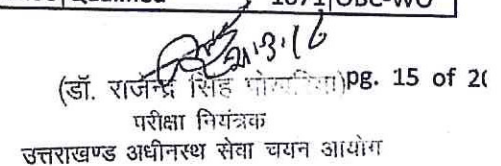 Qualified 1671 OBC-WO
21.3.16
(डॉ. राजेन्द्र सिंह पोखरिया) pg. 15 of 20
परीक्षा नियंत्रक
उत्तराखण्ड अधीनस्थ सेवा चयन आयोग